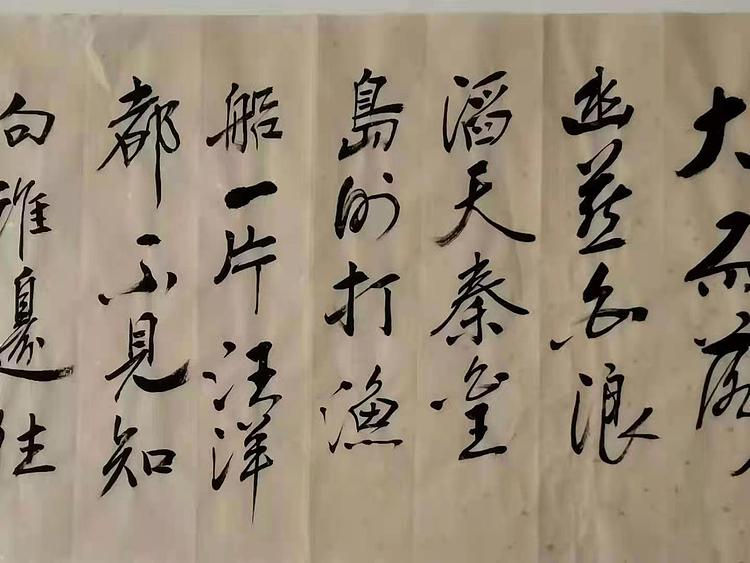 大雨落
幽燕白浪
滔天秦皇
島外打漁
船一片汪洋
都不見知
向誰邊往